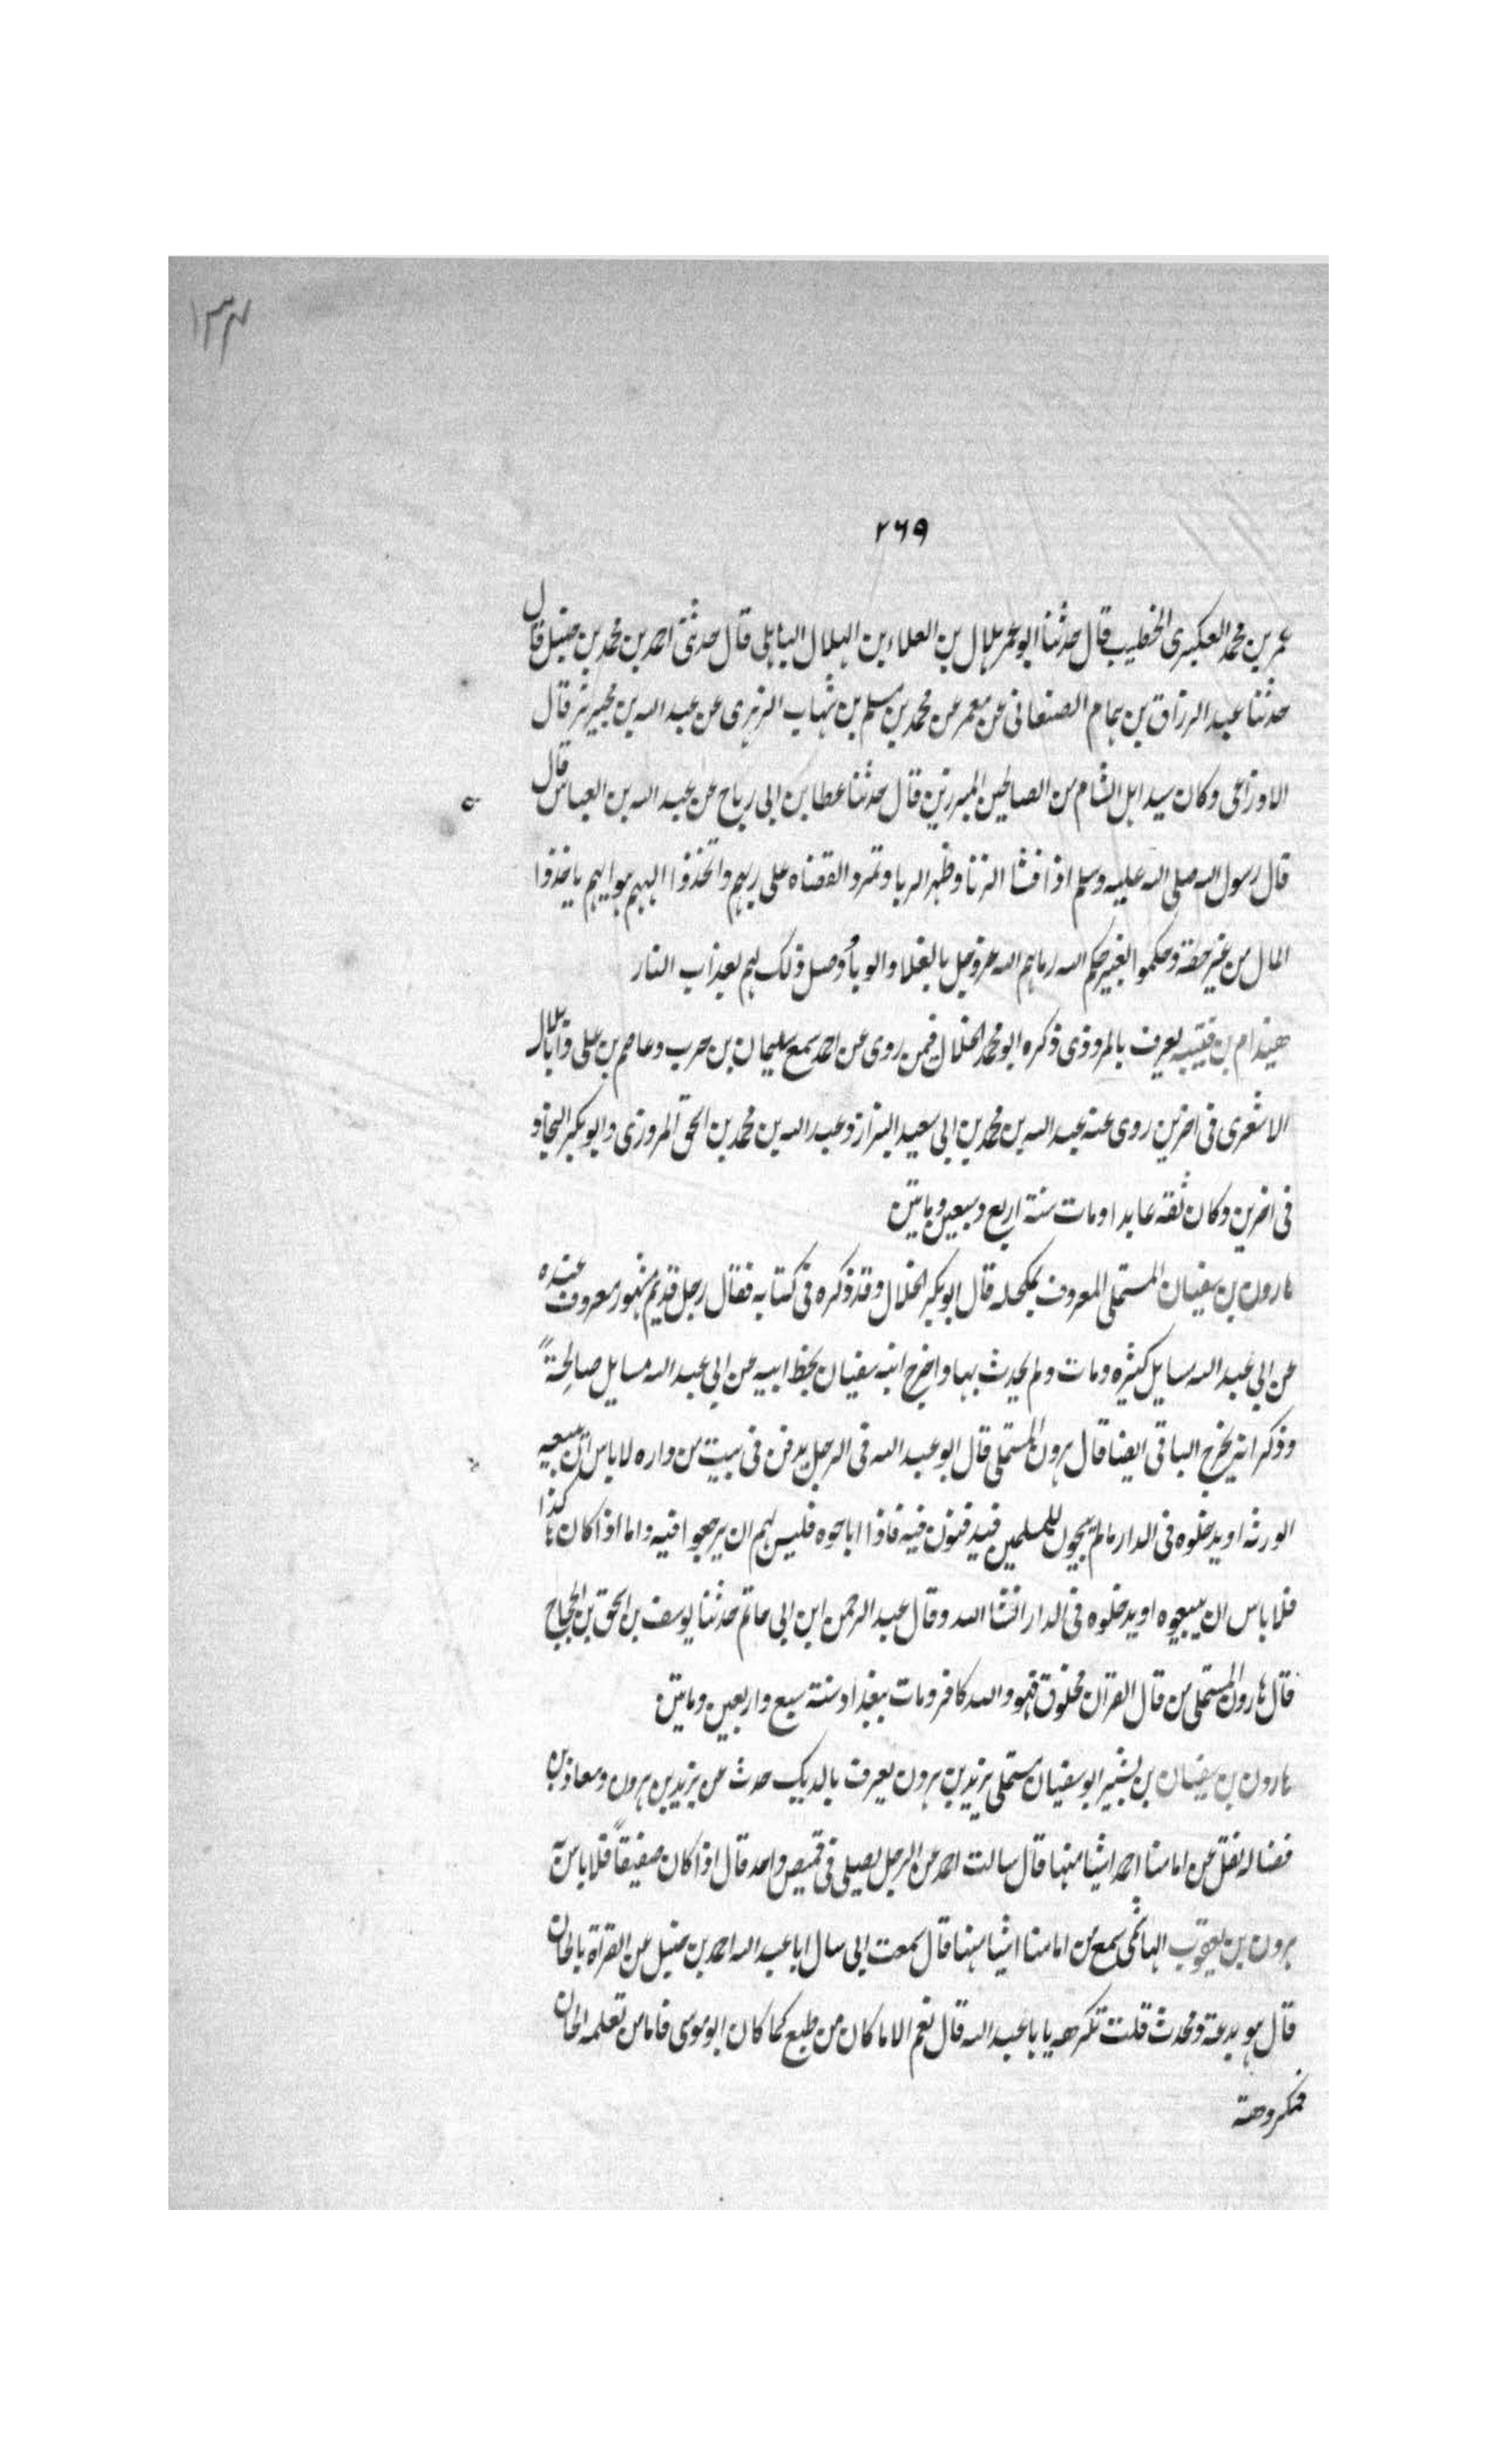 ١٣٤
٢٦٩
عمر بن محمد العكبرى الخطيب قال حدثنا ابو عمر هلال بن العلاء بن الهلال الباهلى قال حدثنى احمد بن محمد بن حنبل قال
حدثنا عبد الرزاق بن همام الصنعانى عن معمر عن محمد بن مسلم بن شهاب الزهرى عن عبد الله بن محيريز قال
الاوزاعى وكان سيد اهل الشام من الصالحين المبرزين قال حدثنا عطا بن ابى رباح عن عبد الله بن العباس قال
قال رسول الله صلى الله عليه وسلم اذا فشا الزنا وظهر الربا وتمرد القضاه على ربهم واتخذوا الههم هواهم ياخذوا
المال من غير حقه وحكموا بغير حكم الله رماهم الله عز وجل بالغلا والوبأ وصل ذلك لهم بعذاب النار
هيذام بن قتيبه يعرف بالمروذى ذكره ابو محمد الخلال فيمن روى عن احمد سمع سليمان بن حرب وعاصم بن على وابا بلال
الاشعرى فى اخرين روى عنه عبد الله بن محمد بن ابى سعيد البزاز وعبد الله بن محمد بن اسحق المروزى وابو بكر النجاد
فى اخرين وكان ثقه عابدا ومات سنة اربع وسبعين وماتين
هارون بن سفيان المستملى المعروف بمكحله قال ابو بكر الخلال وقد ذكره فى كتابه فقال رجل قديم مشهور معروف عنده
عن ابى عبد الله مسايل كثيره ومات ولم يحدث بها واخرج ابنه سفيان بخط ابيه عن ابى عبد الله مسايل صالحة
وذكر انه يخرج الباقى ايضا قال هرون المستملى قال ابو عبد الله فى الرجل يدفن فى بيت من داره لاباس ان يبيعه
الورثه او يدخلوه فى الدار مالم يبيحوه للمسلمين فيدفنون فيه فاذا اباحوه فليس لهم ان يرجعوا فيه واما اذا كان هكذا
فلا باس ان يبيعوه او يدخلوه فى الدار انشا الله وقال عبد الرحمن ابن ابى حاتم حدثنا يوسف بن اسحق بن الحجاج
قال هارون المستملى من قال القران مخلوق فهو والله كافر ومات ببغداد سنة سبع واربعين وماتين
هارون بن سفيان بن بشير ابو سفيان مستملى يزيد بن هرون يعرف بالديك حدث عن يزيد بن هرون ومعاذ بن
فضاله نقل عن امامنا احمد اشيا منها قال سالت احمد عن الرجل يصلى فى قميص واحد قال اذا كان صفيقاً فلا باس به
هرون بن يعقوب الهاشمى سمع من امامنا اشيا منها قال سمعت ابى سال ابا عبد الله احمد بن حنبل عن القراة بالحان
قال هو بدعة ومحدث قلت تكرهه يا با عبد الله قال نعم الا ما كان من طبع كما كان ابو موسى فاما من تعلمه الحان
فمكروهة